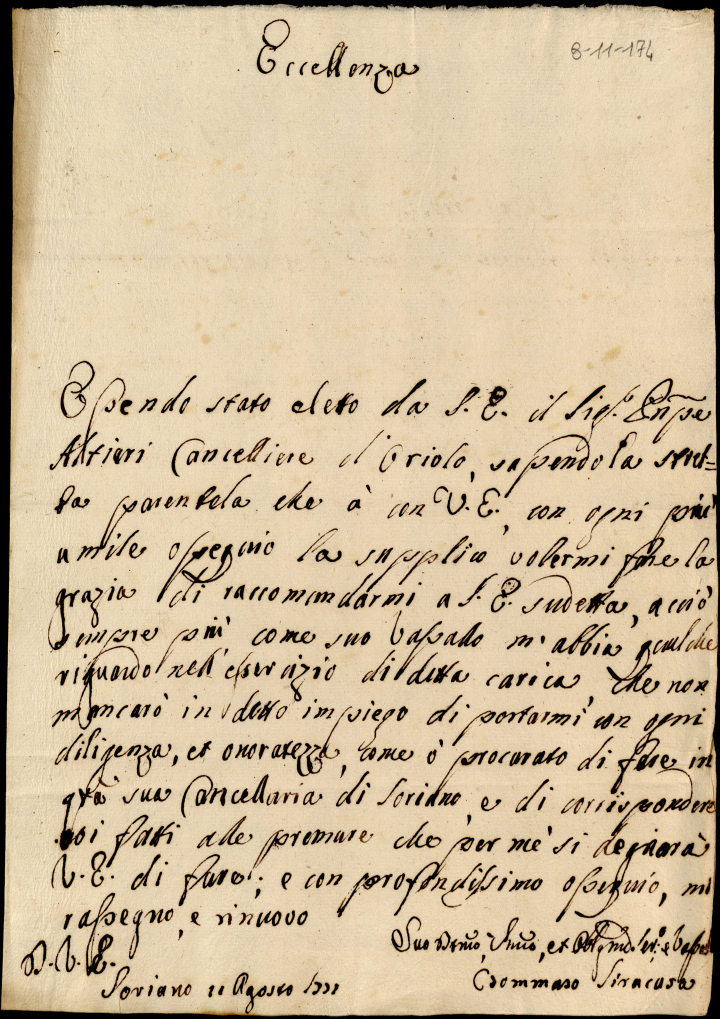 8-11-174
Eccellenza
Essendo stato eletto da S. E. il Sig.r Pñpe
Altieri Cancelliere d'Oriolo, sapendo la stret=
ta parentela che à con V. E., con ogni più
umile ossequio la supplico volermi fare la
grazia di raccomandarmi a S. E. sudetta, acciò
sempre più come suo Vassallo m'abbia qualche
riguardo nell'esercizio di detta carica, che non
mancarò in detto impiego di portarmi con ogni
diligenza, et onoratezza, come ò procurato di fare in
qta sua Cancellaria di Soriano e di corrispondere
coi fatti alle premure che per me si degnarà
V. E. di fare; e con profondissimo ossequio, mi
rassegno, e rinuovo
D. V. E.
Suo et
Soriano 11 Agosto
Tommaso Siracusa